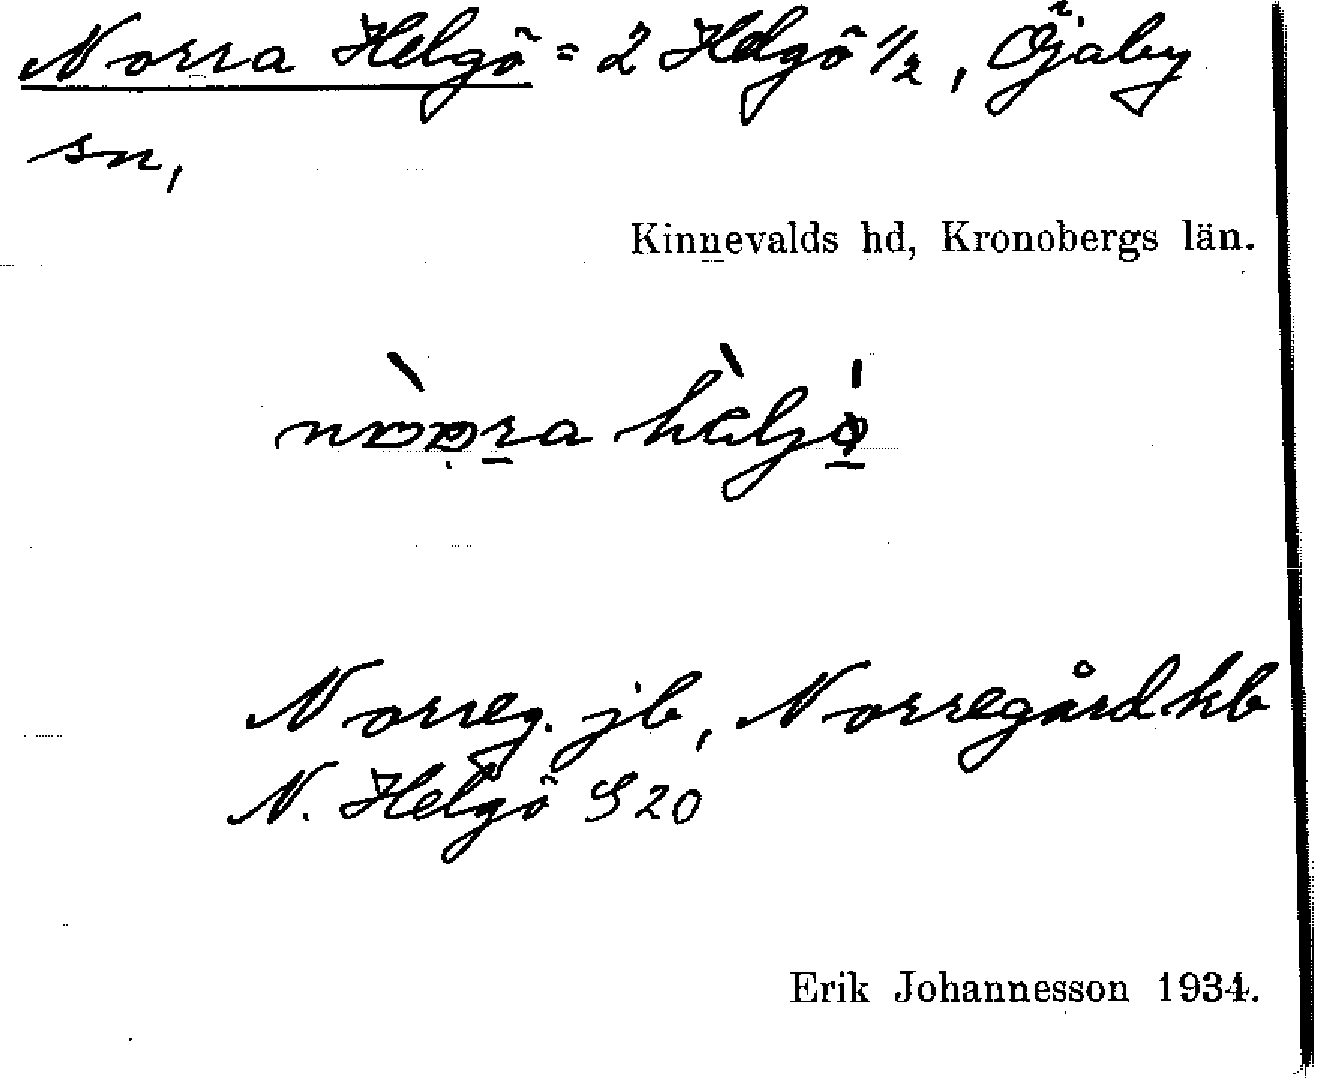 Norra Helgö = 2 Helgö 1/2, Öjaby
sn,
Kinnevalds hd, Kronobergs län.
Norreg. jb, Norregård kb
N. Helgö S 20
Erik Johannesson 1934.